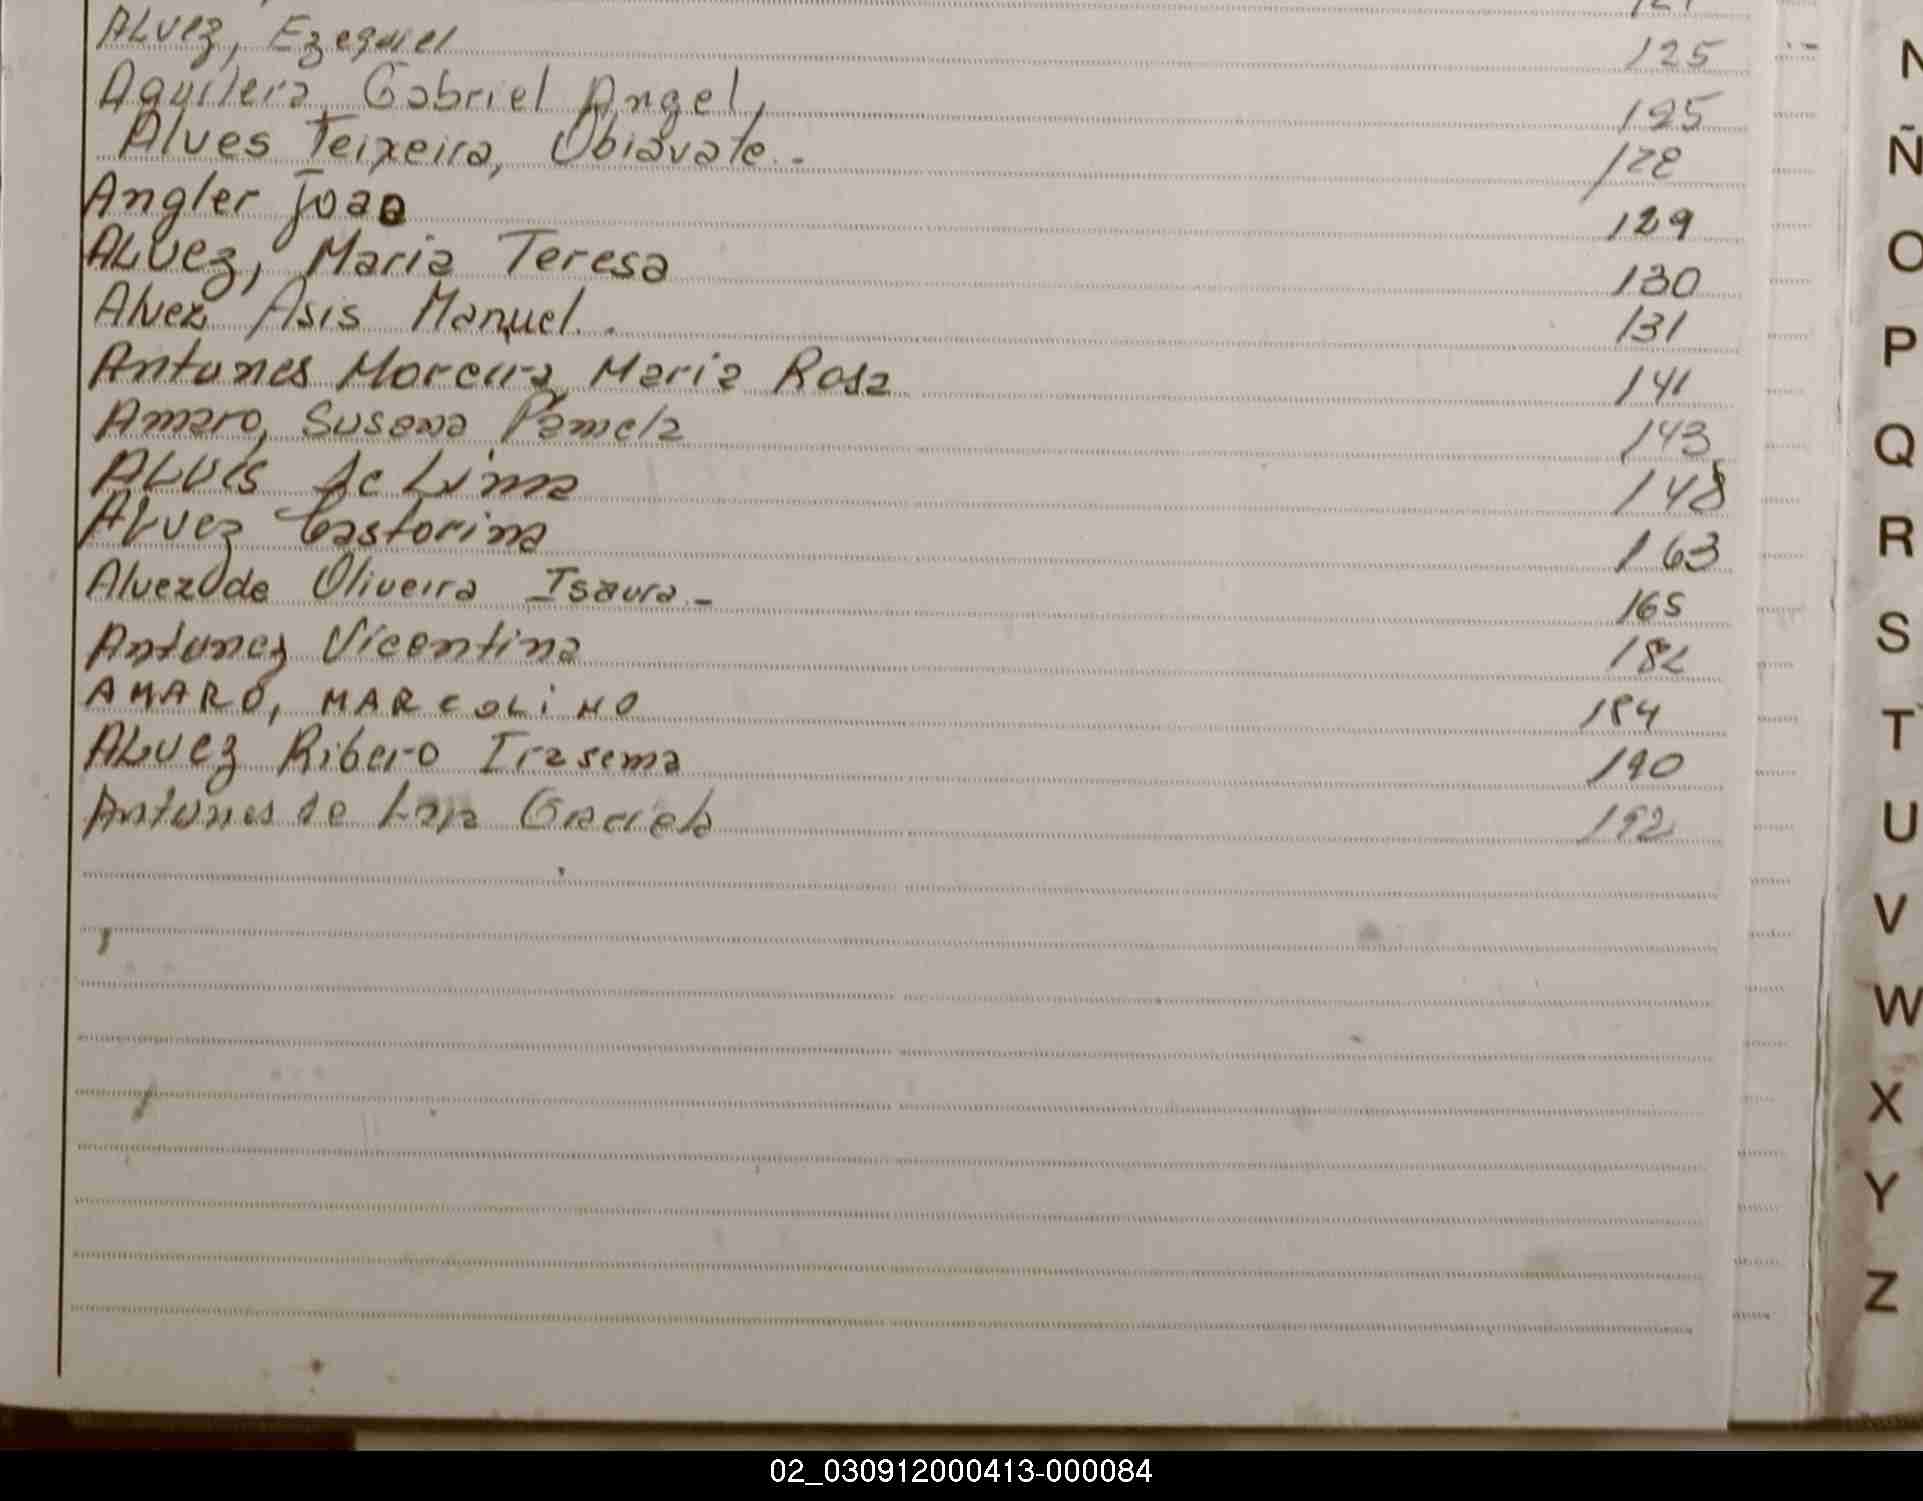 Alvez, Ezequiel 125
Aguilera, Gabriel Angel, 125
Alves Teixeira, Obiavate.- 128
Angler Joao 129
ALVez, Maria Teresa 130
Alvez Asis Manuel. 131
Antunes Moreira Maria Rosa 141
Amaro, Susana Pamela 143
ALVes de Lima 148
ALVez Castorina 163
Alvez de Oliveira Isaura.- 165
Antunez Vicentina 182
AMARO, MARCOLINO 184
ALVez Ribero Irasema 190
Antunes de Graciela 192
N
Ñ
O
P
Q
R
S
T
U
V
W
X
Y
Z
02_030912000413-000084